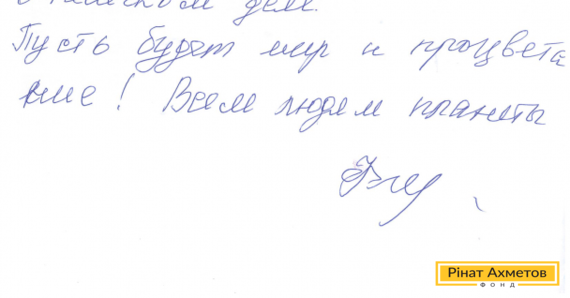 деле.
Пусть будет мир и процвета
ние! Всем людям планеты
Рінат Ахметов
ФОНД